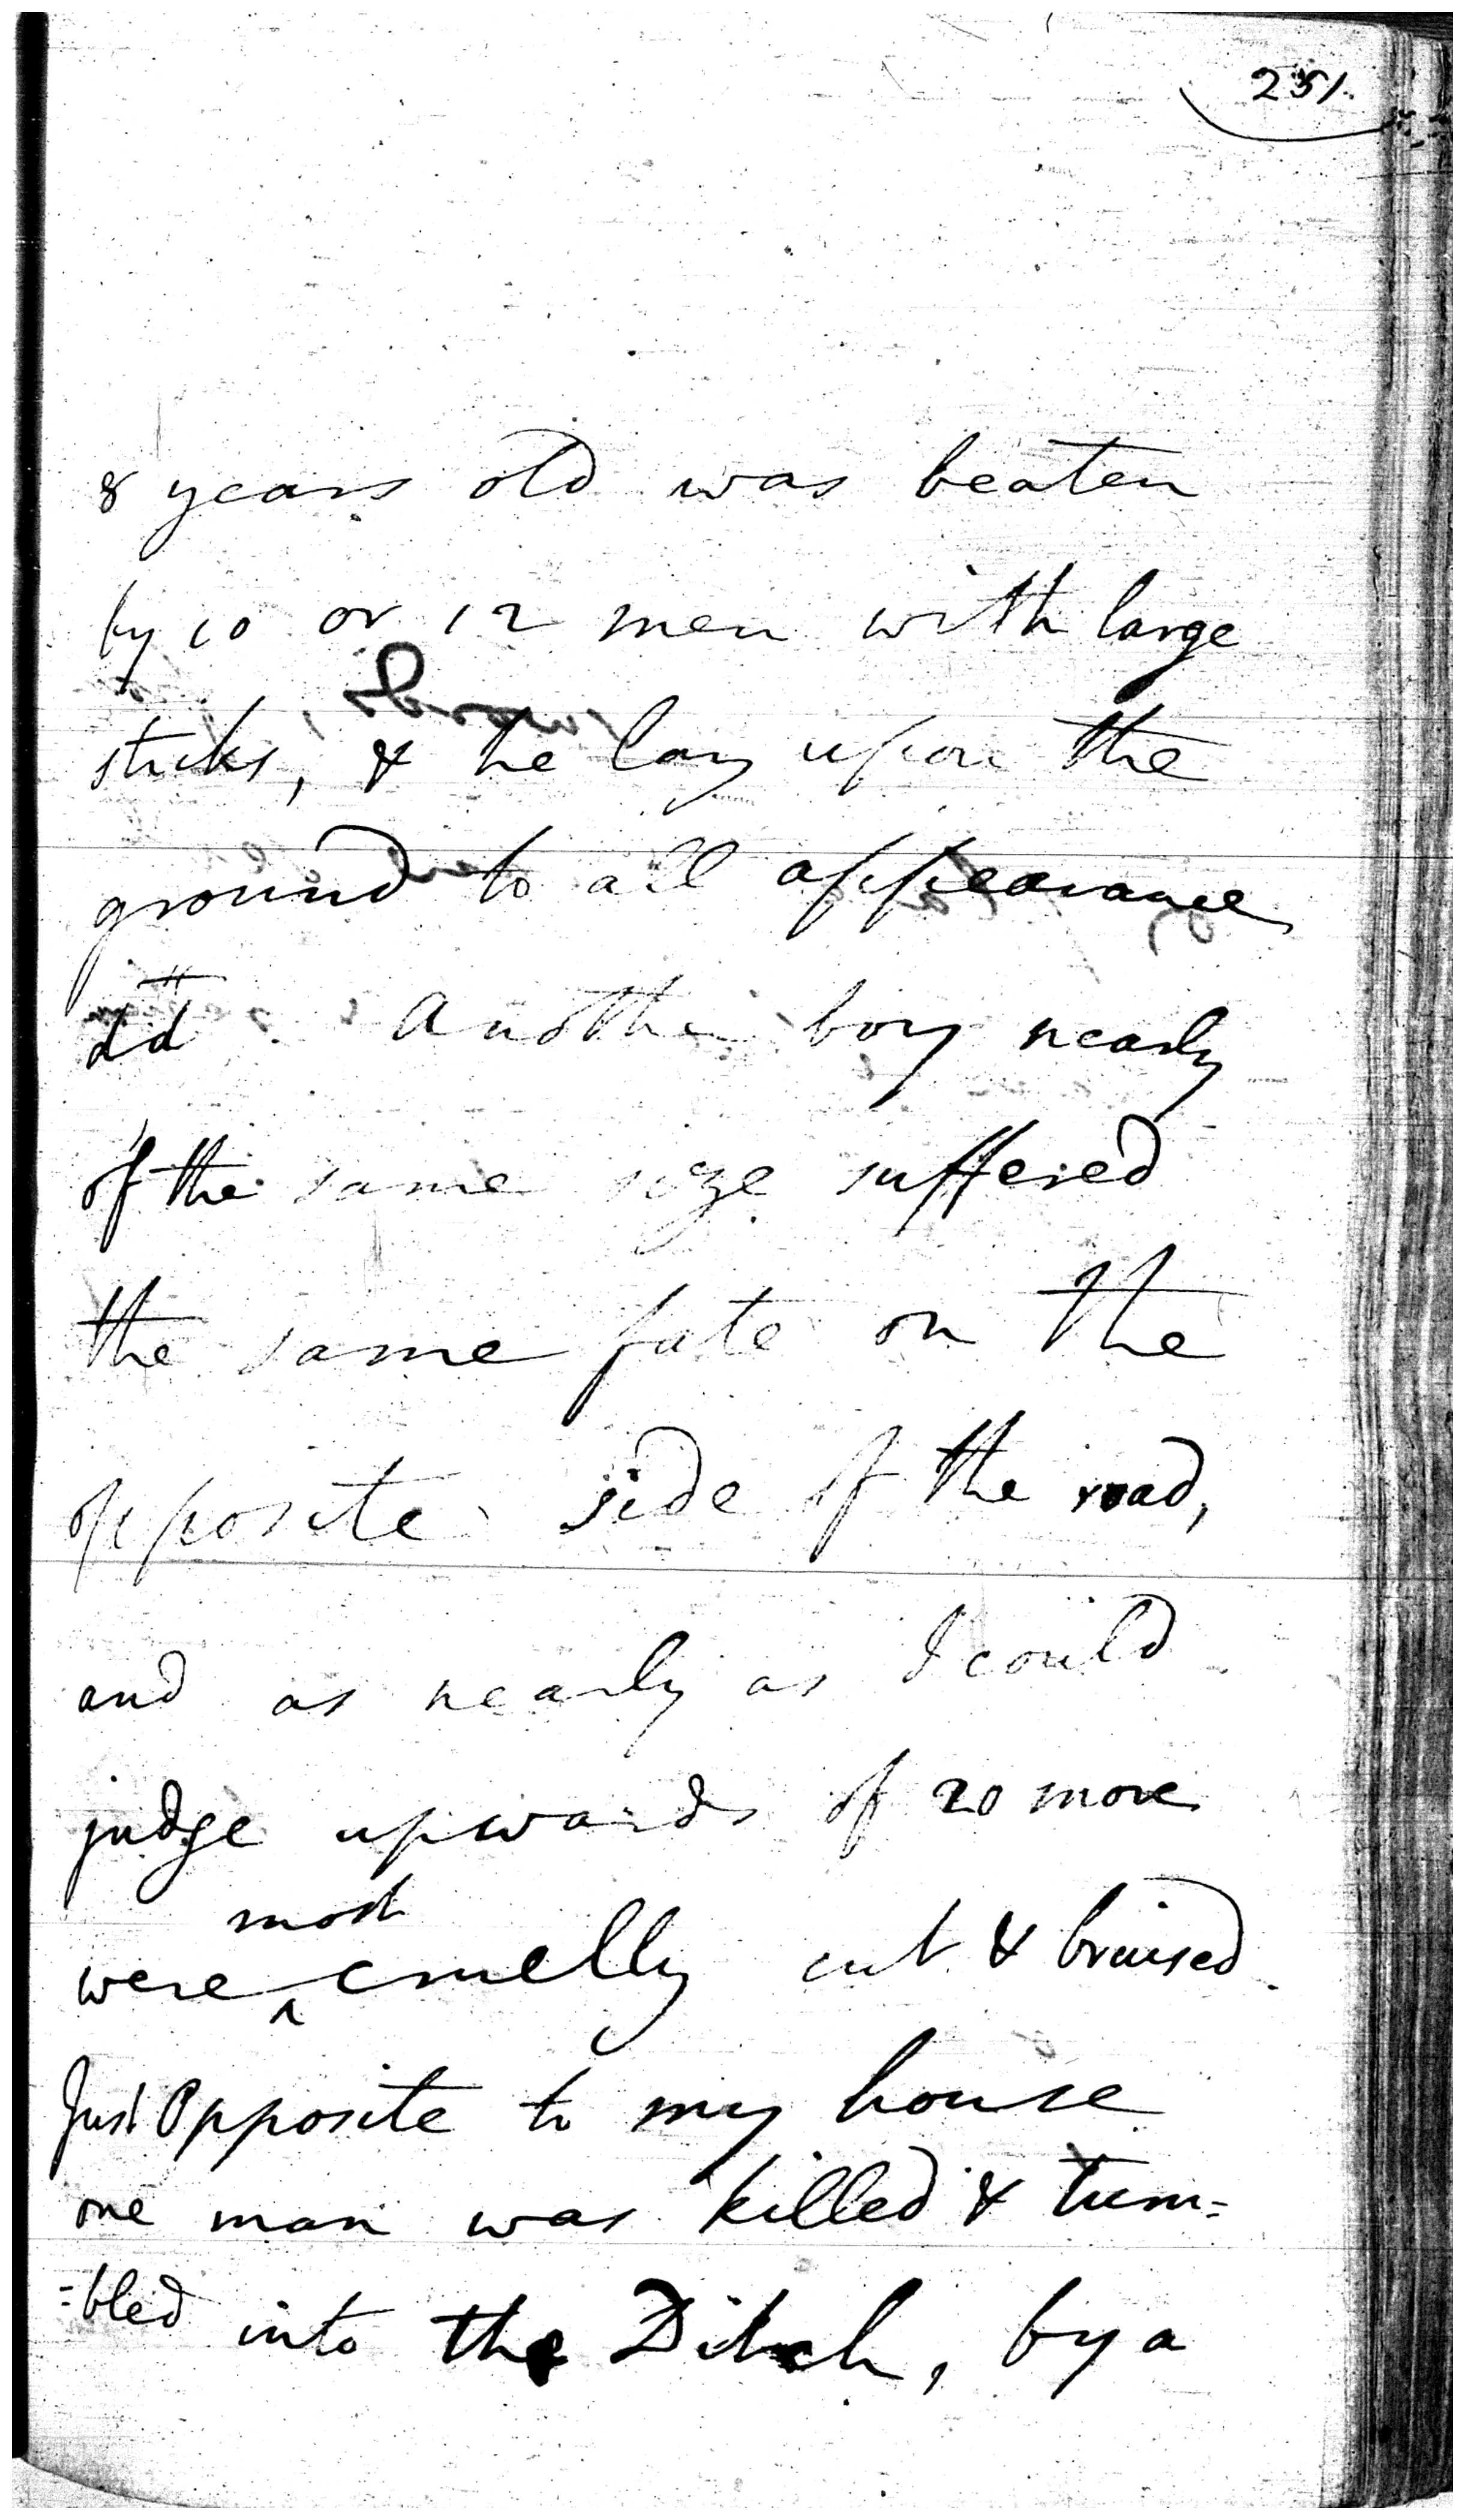 251.
8 years old was beaten
by 10 or 12 men with large
sticks, & he lay upon the
ground to all appearance
Another boy nearly
of the same size suffered
the same fate on the
opposite side of the road,
and as nearly as I could
judge upwards of 20 more
most
were ^ cruelly cut & bruised.
Just Opposite to my house
one man was killed & tum=
=bled into the Ditch, by a